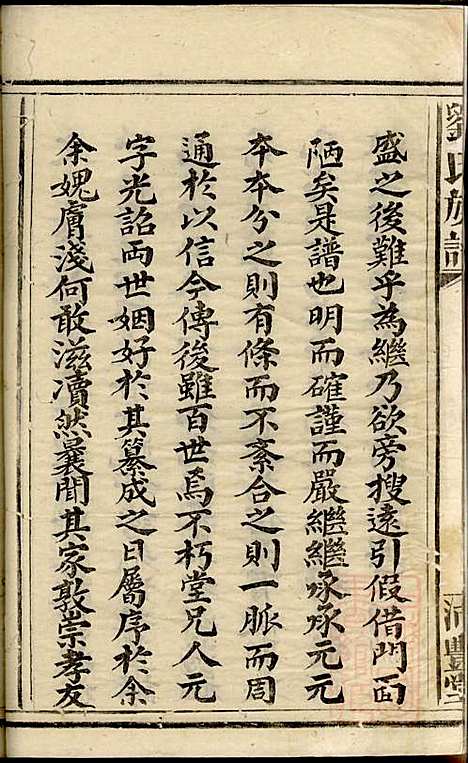 劉氏族譜
盛之後難乎為繼乃欲旁搜遠引假借門面
陋矣是譜也明而確謹而嚴繼繼承承元元
本本分之則有條而不紊合之則一脈而周
通於以信今傳後雖百世焉不朽堂兄人元
字光詔両世姻好於其纂成之日屬序於余
余媿膚淺何敢滋瀆然曩聞其家敦崇孝友
沛豐堂